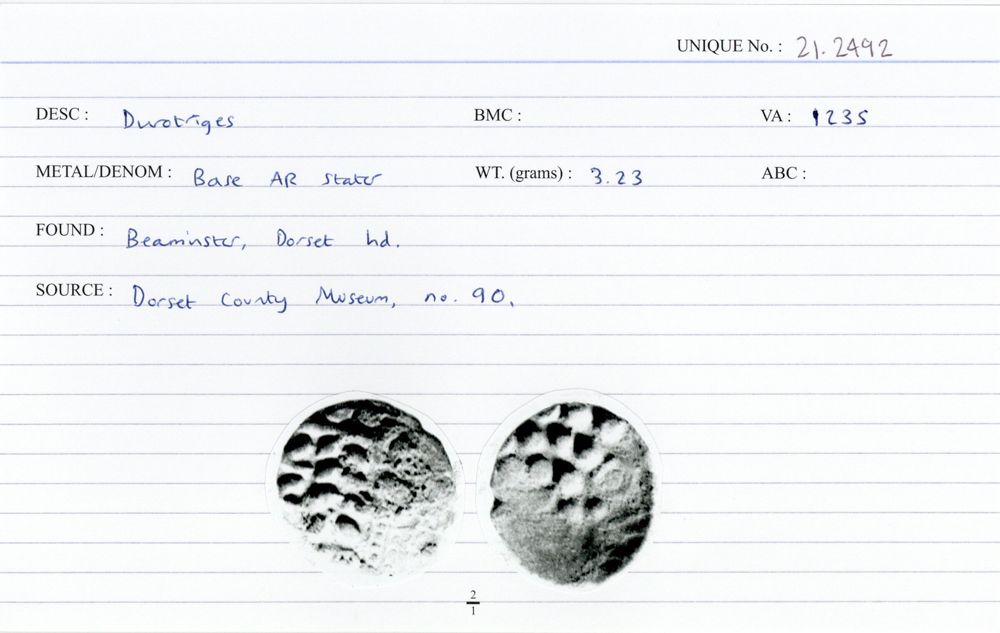 UNIQUE No. : 21.2492
DESC : Durotriges BMC : VA : 1235
METAL/DENOM : Base AR stater WT. (grams) : 3.23 ABC :
FOUND : Beaminster, Dorset hd.
SOURCE : Dorset County Museum, no. 90.
2
1